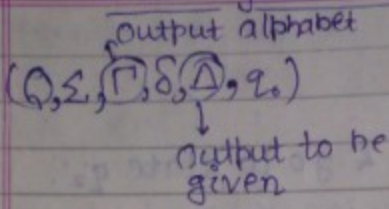 output alphabet
(Q,Σ,Γ,δ,Δ,q₀)
output to be
given